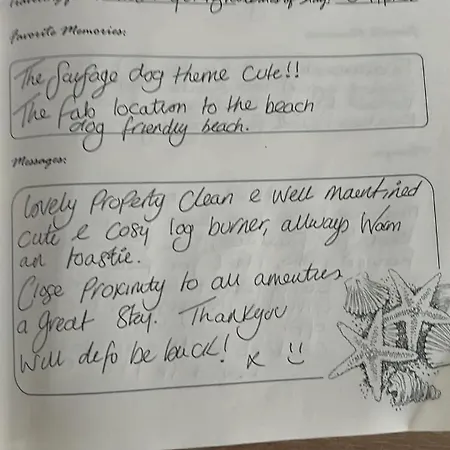 Favorite Memories:
The Sausage dog theme Cute!!
The Fab location to the beach
dog friendly beach.
Messages:
Lovely Property Clean & Well maentined
Cute & Cosy log burner, allways Warm
an toastie.
Close Proximity to all amenties
a great Stay. Thankyou
Will defo be back! x